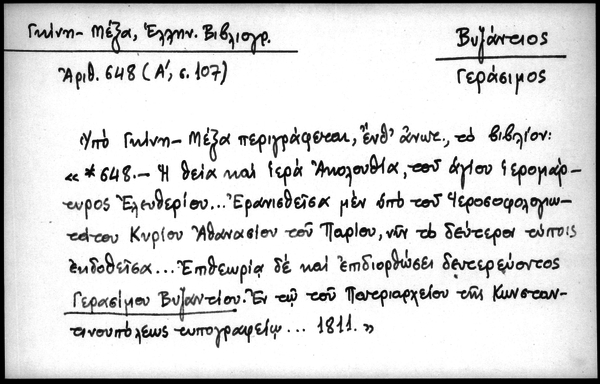 Γκίνη - Μέξα, Ἑλλην. Βιβλιογρ.
Ἀριθ. 648 (Α', σ. 107)
Βυζάντιος
Γεράσιμος
Ὑπὸ Γκίνη - Μέξα περιγράφεται, ἔνθ' ἄνωτ., τὸ βιβλίον:
« *648.- Ἡ θεία καὶ ἱερὰ Ἀκολουθία, τοῦ ἁγίου ἱερομάρ-
τυρος Ἐλευθερίου... Ἐρανισθεῖσα μὲν ὑπὸ τοῦ Ἱεροσοφολογιω-
τάτου Κυρίου Ἀθανασίου τοῦ Παρίου, νῦν τὸ δεύτερον τύποις
ἐκδοθεῖσα... Ἐπιθεωρίᾳ δὲ καὶ ἐπιδιορθώσει δευτερεύοντος
Γερασίμου Βυζαντίου. Ἐν τῷ τοῦ Πατριαρχείου τῆς Κωνσταν-
τινουπόλεως τυπογραφείῳ... 1811.»